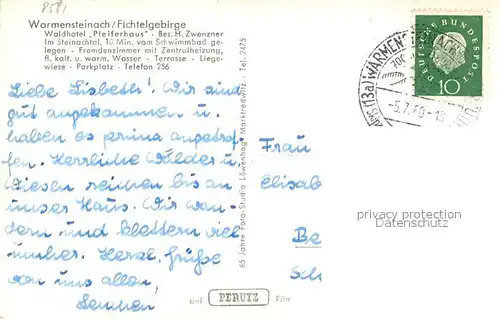 8581
Warmensteinach/Fichtelgebirge
Waldhotel „Pfeiferhaus" · Bes. H. Zwenzner
Im Steinachtal, 10 Min. vom Schwimmbad ge-
legen · Fremdenzimmer mit Zentralheizung,
fl. kalt. u. warm. Wasser · Terrasse · Liege-
wiese · Parkplatz · Telefon 756
Liebe Lisbeth! Wir sind
gut angekommen u.
haben es prima angetrof-
fen. Herrliche Wälder u.
Wiesen reichen bis an
unser Haus. Wir wan-
dern und klettern viel
umher. Herzl. Grüße
von uns allen,
65 Jahre Foto-Studio Löwenhag · Marktredwitz · Tel. 2475
auf PERUTZ Film
(13a) WARMEN
-5.7.60-18
DEUTSCHE BUNDESPOST
10
Frau
Elisab
Be
Sch
privacy protection
watermark